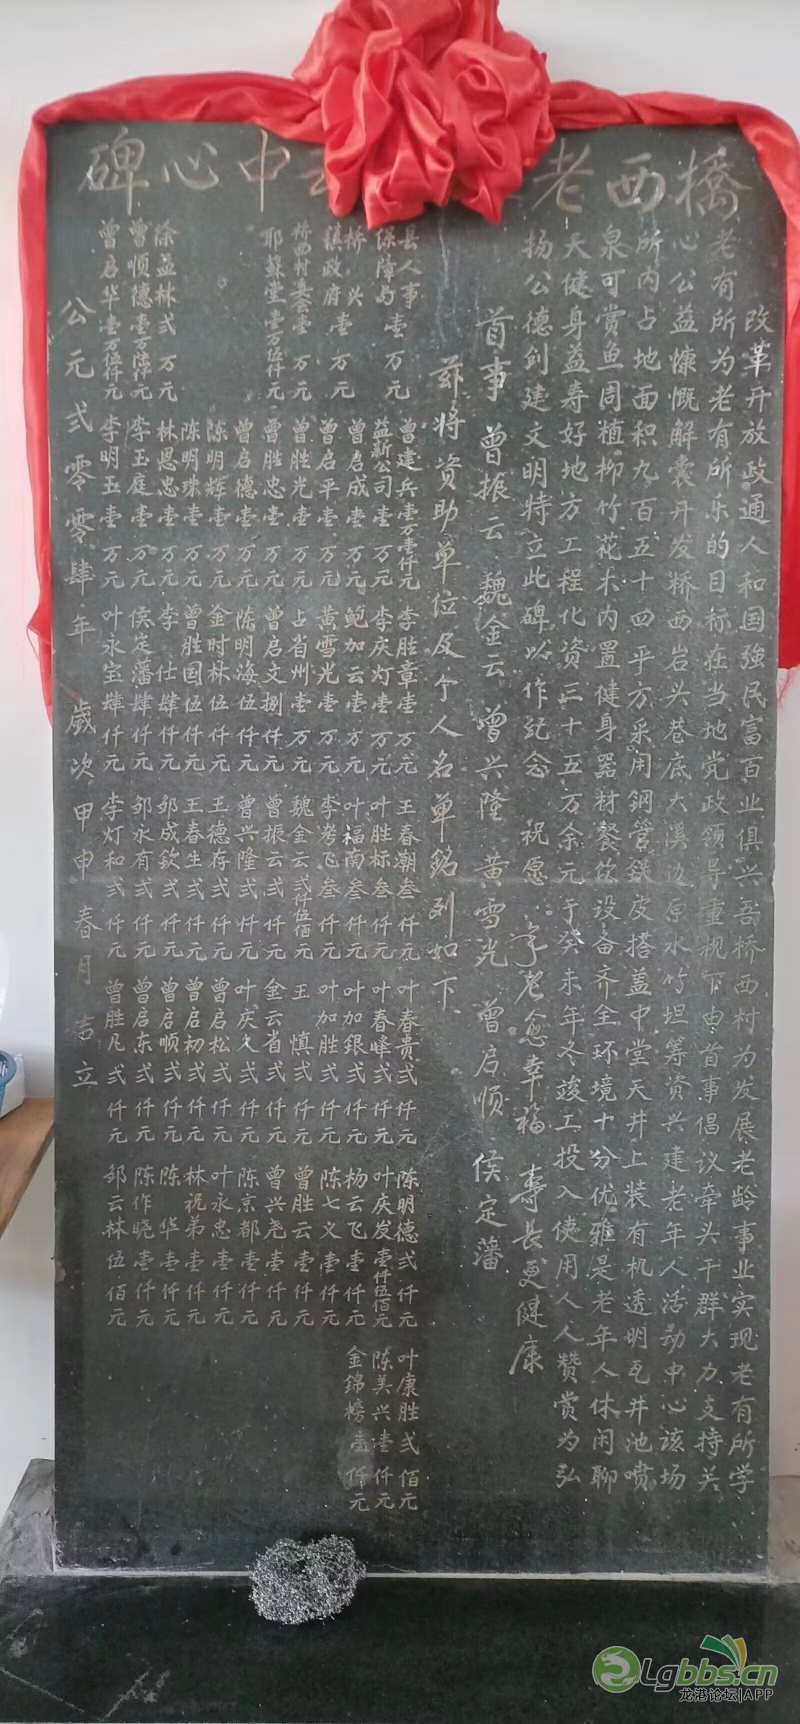 橋西老 中心碑
改革开放政通人和国強民富百业俱兴吾桥西村为发展老龄事业实现老有所学
老有所为老有所乐的目标在当地党政领导重视下由首事倡议牵头干群大力支持关
心公益慷慨解囊开发桥西岩头巷底大溪边原水竹坦筹资兴建老年人活动中心该场
所内占地面积九百五十四平方采用钢管鉄皮搭盖中堂天井上装有机透明瓦井池喷
泉可赏鱼周植柳竹花木内置健身器材餐饮设备齐全环境十分优雅是老年人休闲聊
天健身益寿好地方工程化资三十五万余元于癸未年冬竣工投入使用人人赞赏为弘
扬公德创建文明特立此碑以作纪念 祝愿 享老愈幸福 寿长更健康
首事 曾振云 魏金云 曾兴隆 黄雪光 曾启顺 侯定藩
兹将资助单位及个人名单銘列如下
县人事 曾建兵壹万壹仟元 李胜章壹万元 王春潮叁仟元 叶春贵弍仟元 陈明德弍仟元 叶康胜弍佰元
保障局壹万元 益新公司壹万元 李庆灯壹万元 叶胜标叁仟元 叶春峰弍仟元 叶庆发壹仟伍佰元 陈美兴壹仟元
桥兴 曾启成壹万元 鲍加云壹万元 叶福南叁仟元 叶加銀弍仟元 杨云飞壹仟元 金錦榜壹仟元
镇政府壹万元 曾启平壹万元 黄雪光壹万元 李考飞叁仟元 叶加胜弍仟元 陈七义壹仟元
桥西村委会壹万元 曾胜光壹万元 占省州壹万元 魏金云弍仟伍佰元 王慎弍仟元 曾胜云壹仟元
耶蘇堂壹万伍仟元 曾胜忠壹万元 曾启文捌仟元 曾振云弍仟元 金云省弍仟元 曾兴尧壹仟元
曾启德壹万元 陈明海伍仟元 曾兴隆弍仟元 叶庆久弍仟元 陈京都壹仟元
陈明輝壹万元 金时林伍仟元 王德存弍仟元 曾启松弍仟元 叶永忠壹仟元
陈明珠壹万元 曾胜国伍仟元 王春生弍仟元 曾启初弍仟元 林祝弟壹仟元
徐益林弍万元 林恩忠壹万元 李仕肆仟元 邹成钦弍仟元 曾启顺弍仟元 陈华壹仟元
曾顺德壹万陆仟元 李玉庭壹万元 侯定藩肆仟元 邹永有弍仟元 曾启东弍仟元 陈作晓壹仟元
曾启华壹万伍仟元 李明玉壹万元 叶永宝肆仟元 李灯和弍仟元 曾胜凡弍仟元 邹云林伍佰元
公元弍零零肆年 歲次甲申春月吉立
Lgbbs.cn
龙港论坛|APP